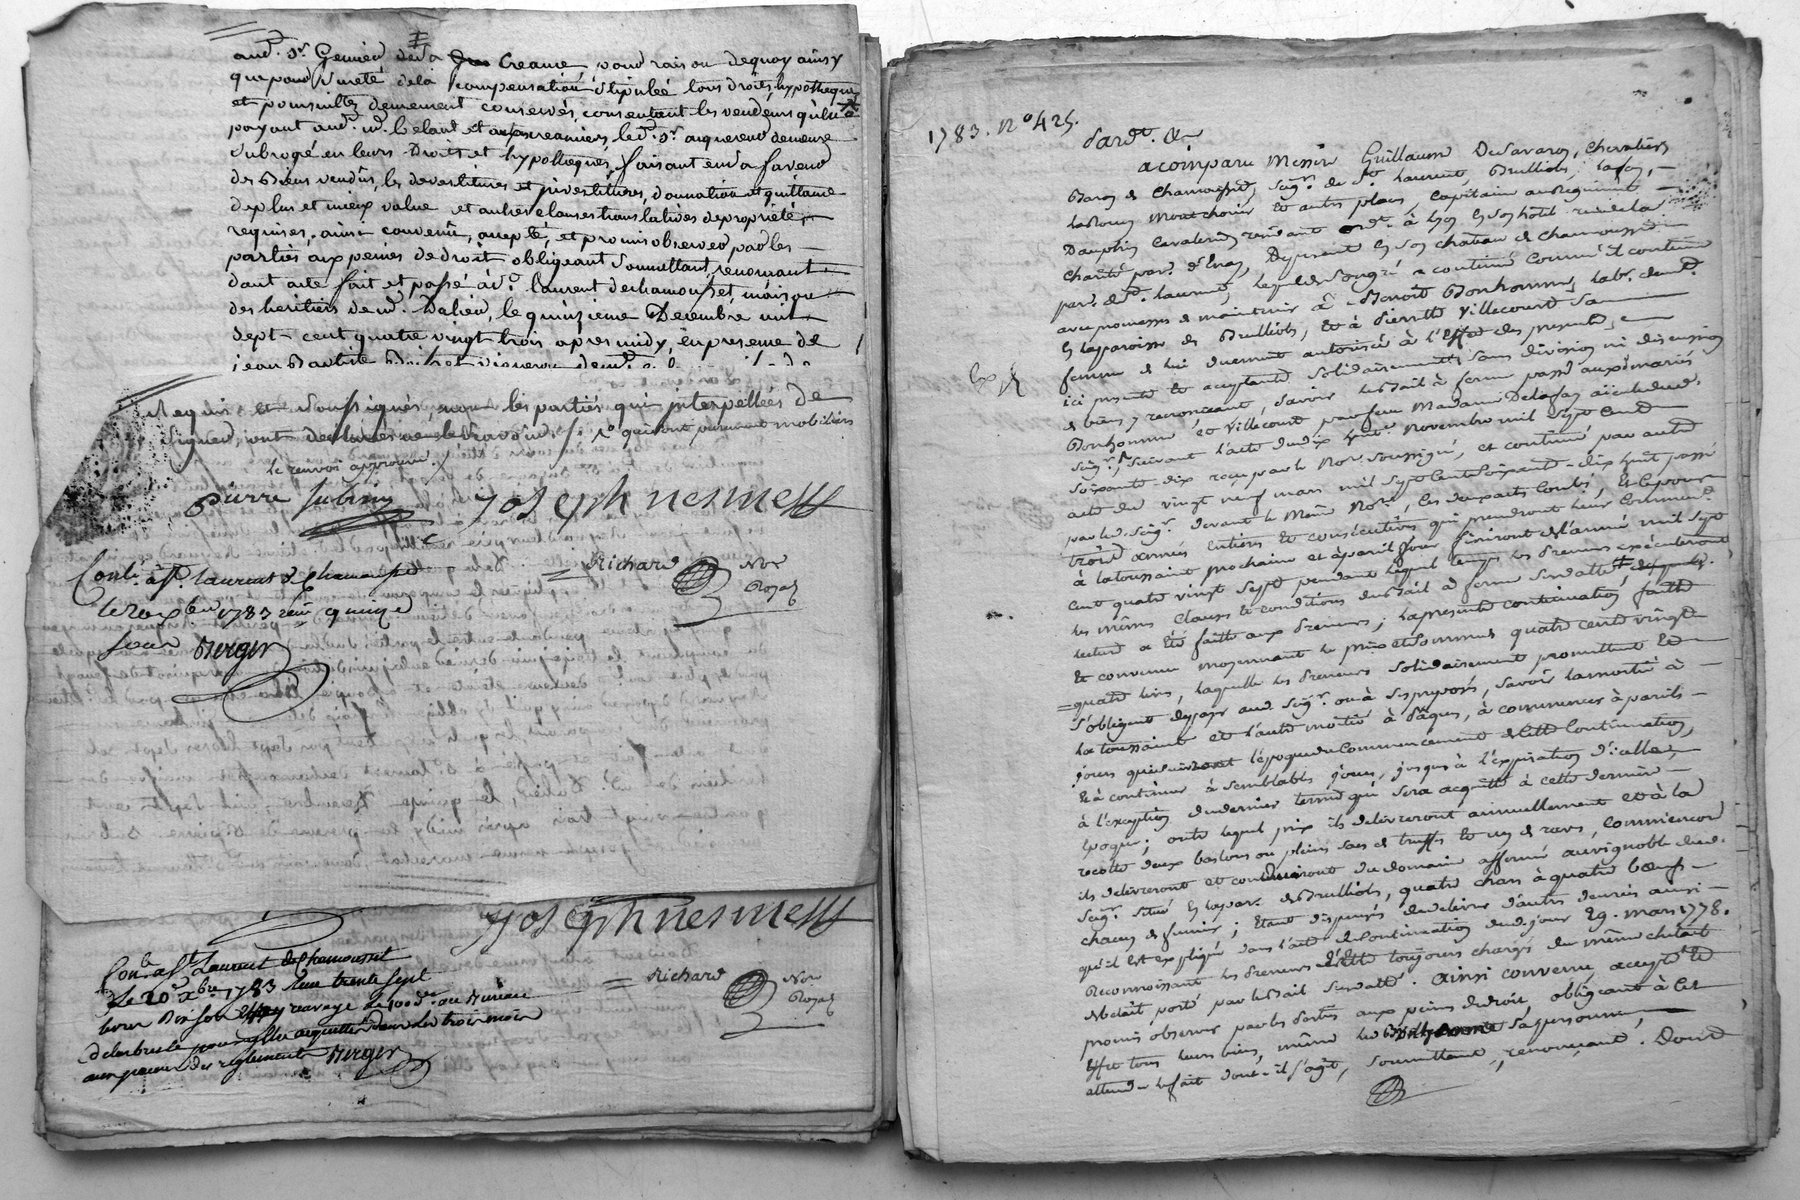 aud. Sr. Genied de la Creance, pour raison dequoy ainsy
que pour sureté de la compensation stipulée tous droits, hypotheques
et poursuittes demeurent conservés, consentant les vendeurs qu'en
payant aud. et creanciers, led. Sr. acquereur demeure
subrogé en leurs Droits et hypotheques, faisant en sa faveur
des Biens vendus, les devestitures et jnvestitures, donnation et quittance
de plus et mieux value et autres clauses translatives de proprieté,
requises, ainsi convenu, accepté, et promis observer par les
parties aux peines de droit obligeant soumettant, renonçant
dont acte fait et passé à St. laurent de chamousset, maison
des heritiers de M. Dalier, le quinzieme Decembre mil
sept cent quatre vingt trois apres midy, en presence de
jean Baptiste vigneron demt.
Requis et soussignés, non les parties qui jnterpellées de
signer, ont declaré ne le sçavoir
le renvoi approuvé.
pierre subrin joseph nesmess
Richard Nore Royal
Contlé. à St. laurent de Chamousset
le 20 xbre 1783 reçu quinze
sous Berger
joseph nesmess
Richard Nore Royal
Conté. a St. Laurent de Chamousset
Le 20e. xbre 1783 Reçu trente sept
livres Dix sols au Bureau
de larbresle pour y estre acquitté dans les trois mois
aux peines des reglements Berger
1783. N° 425.
Pardt. &
a comparu Messire Guillaume De Savaron, chevalier
Baron de Chamousset, seigr. de St. Laurent, Brulliole, la fay,
la Roue, Montchoisi et autres places, Capitaine au Regiment
Dauphin Cavalerie, residant ordt. à lyon en son hôtel rue de la
Charité parr. d'Enay, De present en son chateau de Chamousset
parr. de St. Laurent, lequel de son gré a continué comme il continue
avec promesses de maintenir à Benoit Bonhomme, labr. demt.
en la paroisse de Brulliole, et à Pierrette Villecourt sa
femme de lui duement autorisée à l'effet des presentes,
ici presents et acceptants solidairement sans division ni discussion
de biens y renonceant, savoir le Bail à ferme passé aux mariés
Bonhomme et Villecourt par feue Madame Delafay aïeule dud.
seigr., suivant l'acte du dix huit Novembre mil sept cent
soixante dix reçu par le Nore. soussigné, et continué par autre
acte du vingt neuf mars mil sept cent soixante-dix huit passé
par led. seigr. devant le même Nore., les deux actes contlés, et ce pour
trois années entieres et consécutives qui prendront leur commencemt.
à la toussaint prochaine et à pareil jour finiront de l'année mil sept
cent quatre vingt sept pendant lequel temps les Preneurs executeront
les mêmes clauses et conditions du bail à ferme susdatté,
lecture a été faitte aux Preneurs; la presente continuation faitte
et convenue moyennant le prix et somme de quatre cent vingt
quatre livres, laquelle les Preneurs solidairement promettent et
s'obligent de payer aud. seigr. ou à ses preposés, savoir la moitié à
la toussaint et l'autre moitié à Pâques, à commencer à pareils
jours qui suivront l'époque du commencement de cette Continuation,
et à continuer à semblables jours, jusques à l'expiration d'icelle,
à l'exception du dernier terme qui sera acquitté à cette derniere
époque; outre lequel prix ils delivreront annuellement et à la
recolte deux bastons ou pleins sacs de truffes et un de raves,
ils delivreront et conduiront du domaine affermé au vignoble dud.
seigr. situé en lad. parr. de Brulliole, quatre chars à quatre bœufs
chacun de fumier; étant dispensés de delivrer d'autres denrées ainsi
qu'il est expliqué dans l'acte de Continuation dud. jour 29. Mars 1778.
Reconnoissant les Preneurs d'être toujours chargés du même cheptail
de betail porté par le Bail susdatté. Ainsi convenu, accepté et
promis observer par les Parties aux peines de droit, obligeant à cet
effet tous leurs biens, même led. Bonhomme sa personne,
attendu le fait dont il s'agit, soumettant, renonçant. Dont